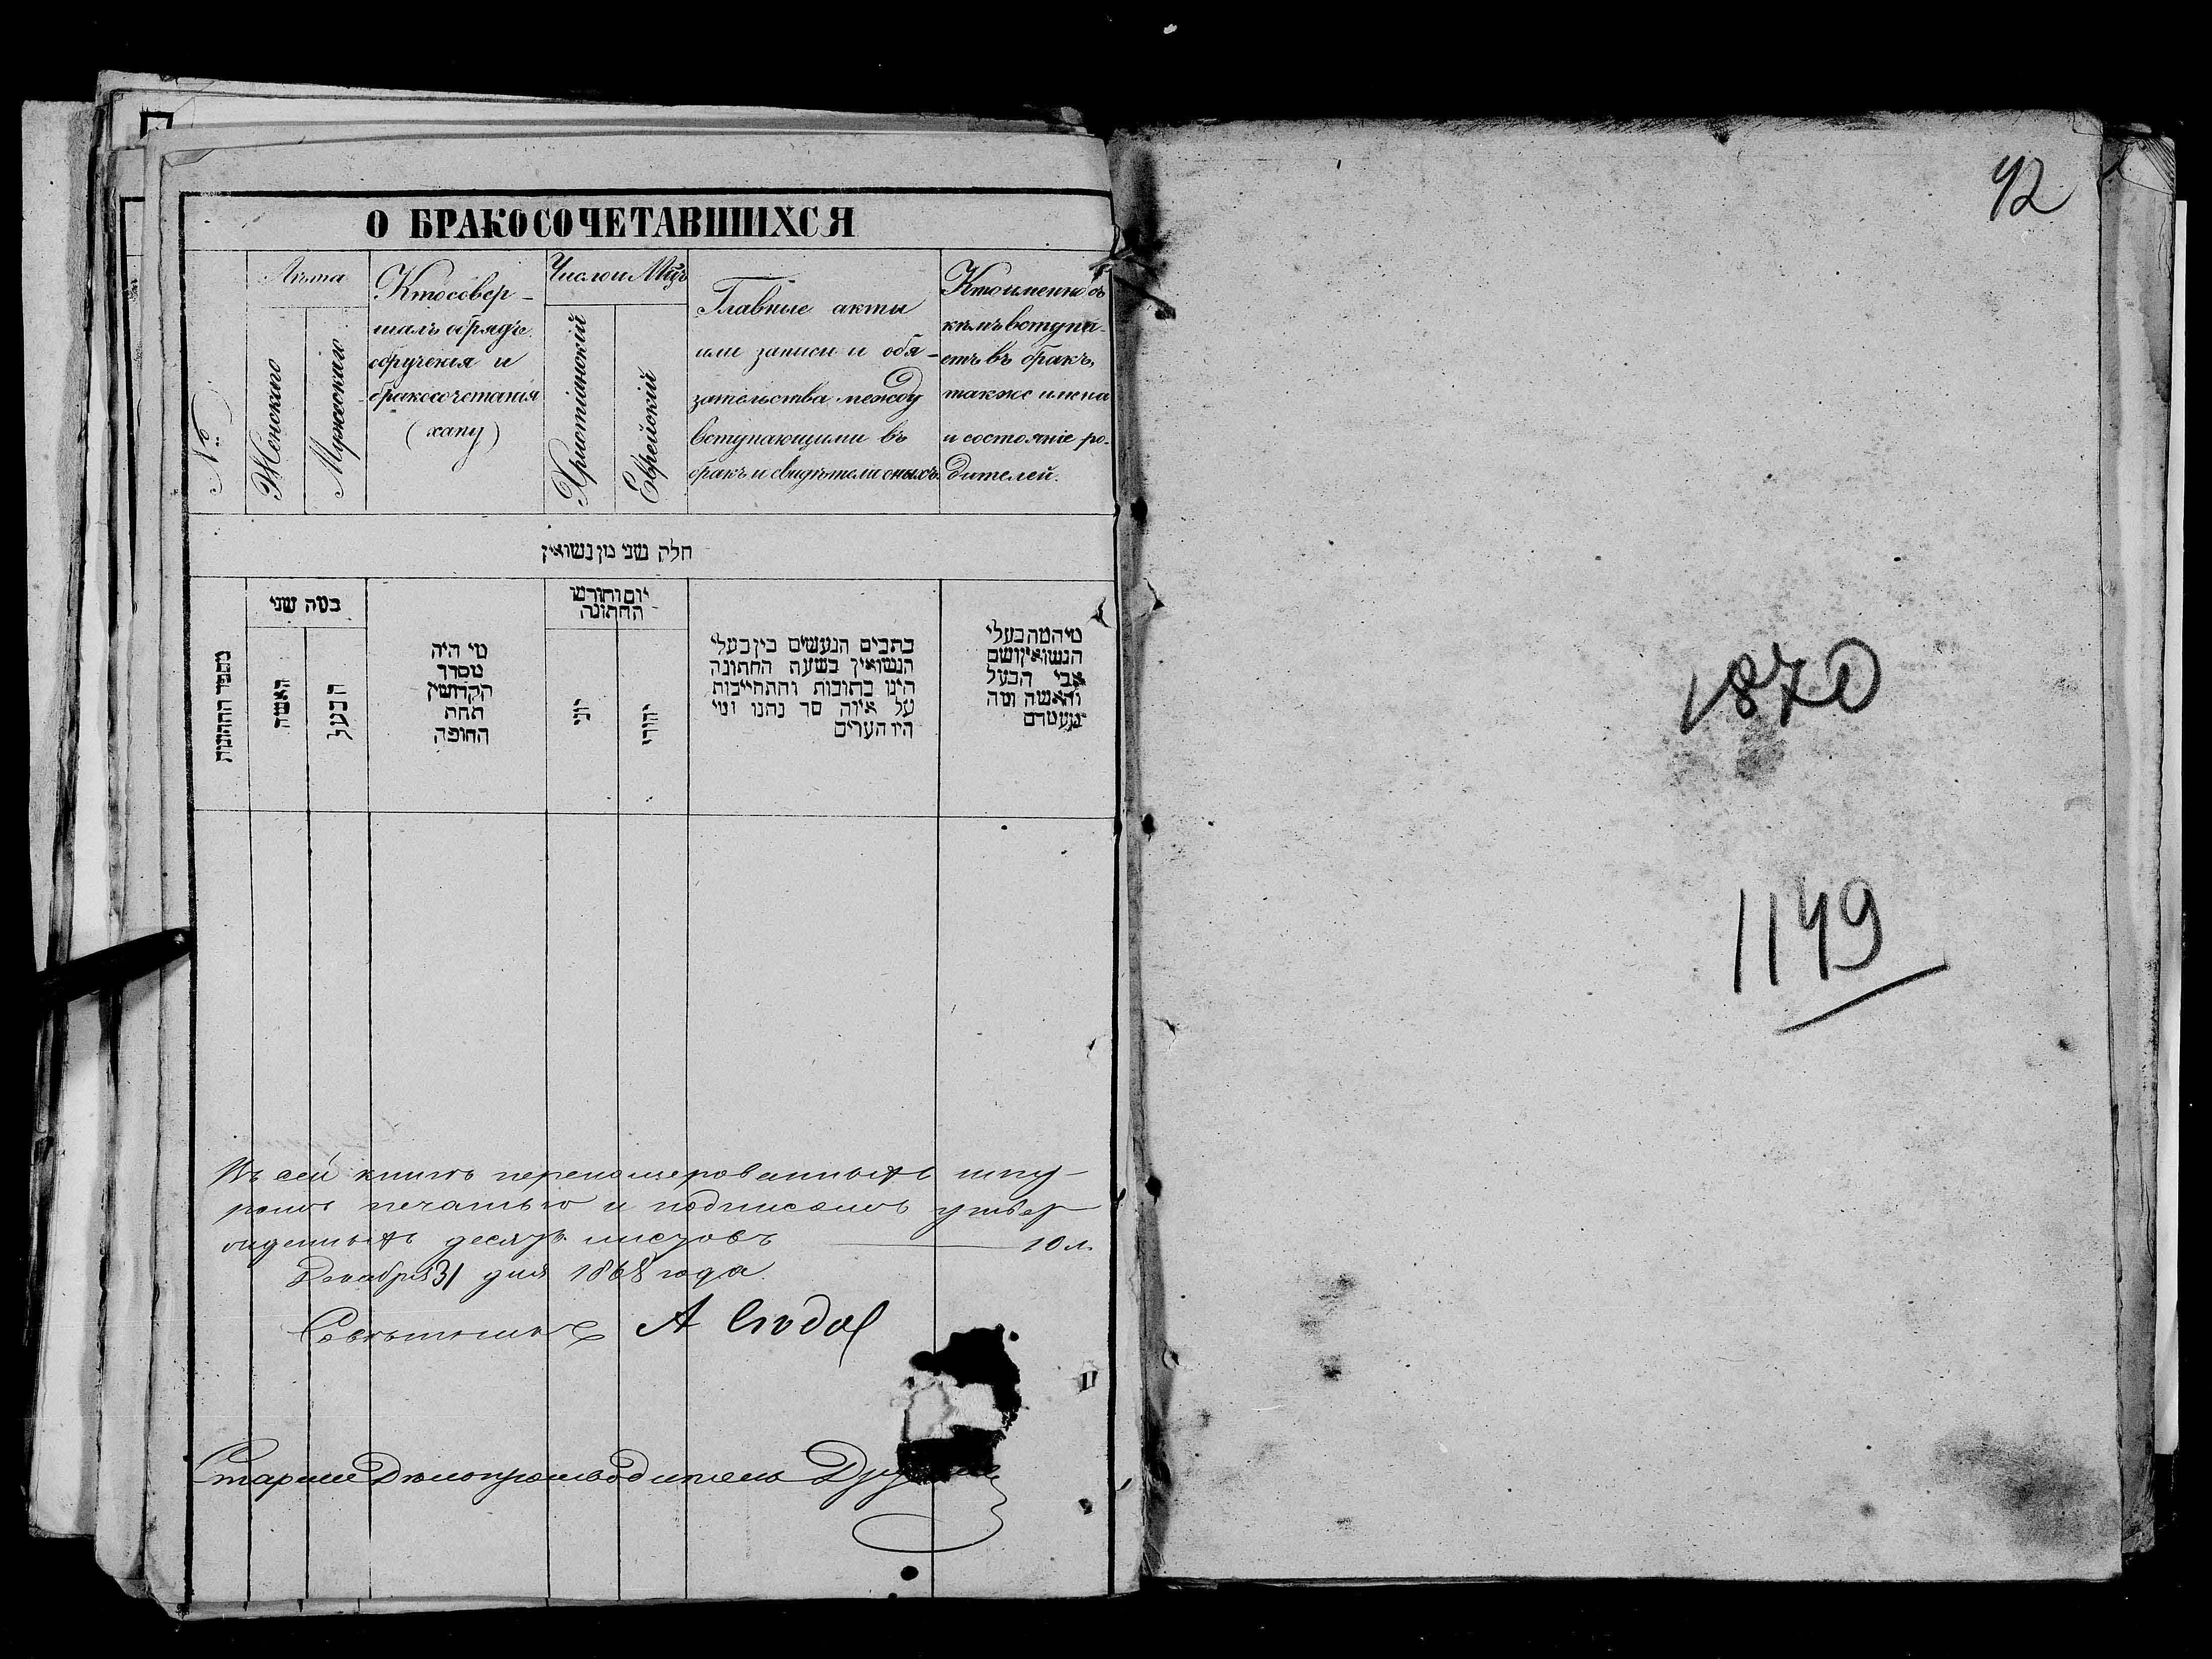 О БРАКОСОЧЕТАВШИХСЯ
№
Лѣта
Женскаго
Мужескаго
Кто совер-
шалъ обрядъ
обрученія и
бракосочетанія
(хапу)
Число и Мцъ
Христіанскій
Еврейскій
Главные акты
или записи и обя-
зательства между
вступающими въ
бракъ и свидѣтели оныхъ.
Кто именно съ
кѣмъ вступа-
етъ въ бракъ,
также имена
и состояніе ро-
дителей.
חלק שני מן נשואין
מספר החתונות
כמה שני
האשה
הבעל
מי היה
מסדר
הקדושין
תחת
החופה
יום וחודש
החתונה
יוני
יהודי
כתבים הנעשים בין בעלי
הנשואין בשעת החתונה
היינו כתובות והתחייבות
על איזה סך נתנו ומי
היו העדים
מיהמה בעלי
הנשואין ושם
אבי הבעל
והאשה ומה
מעמדם
Въ сей книгѣ перенумерованныхъ шну-
ромъ печатью и подписомъ утвер
жденныхъ десять листовъ — 10 л.
Декабря 31 дня 1868 года.
Совѣтникъ А
Старшій Дѣлопроизводитель
42
1870
1149